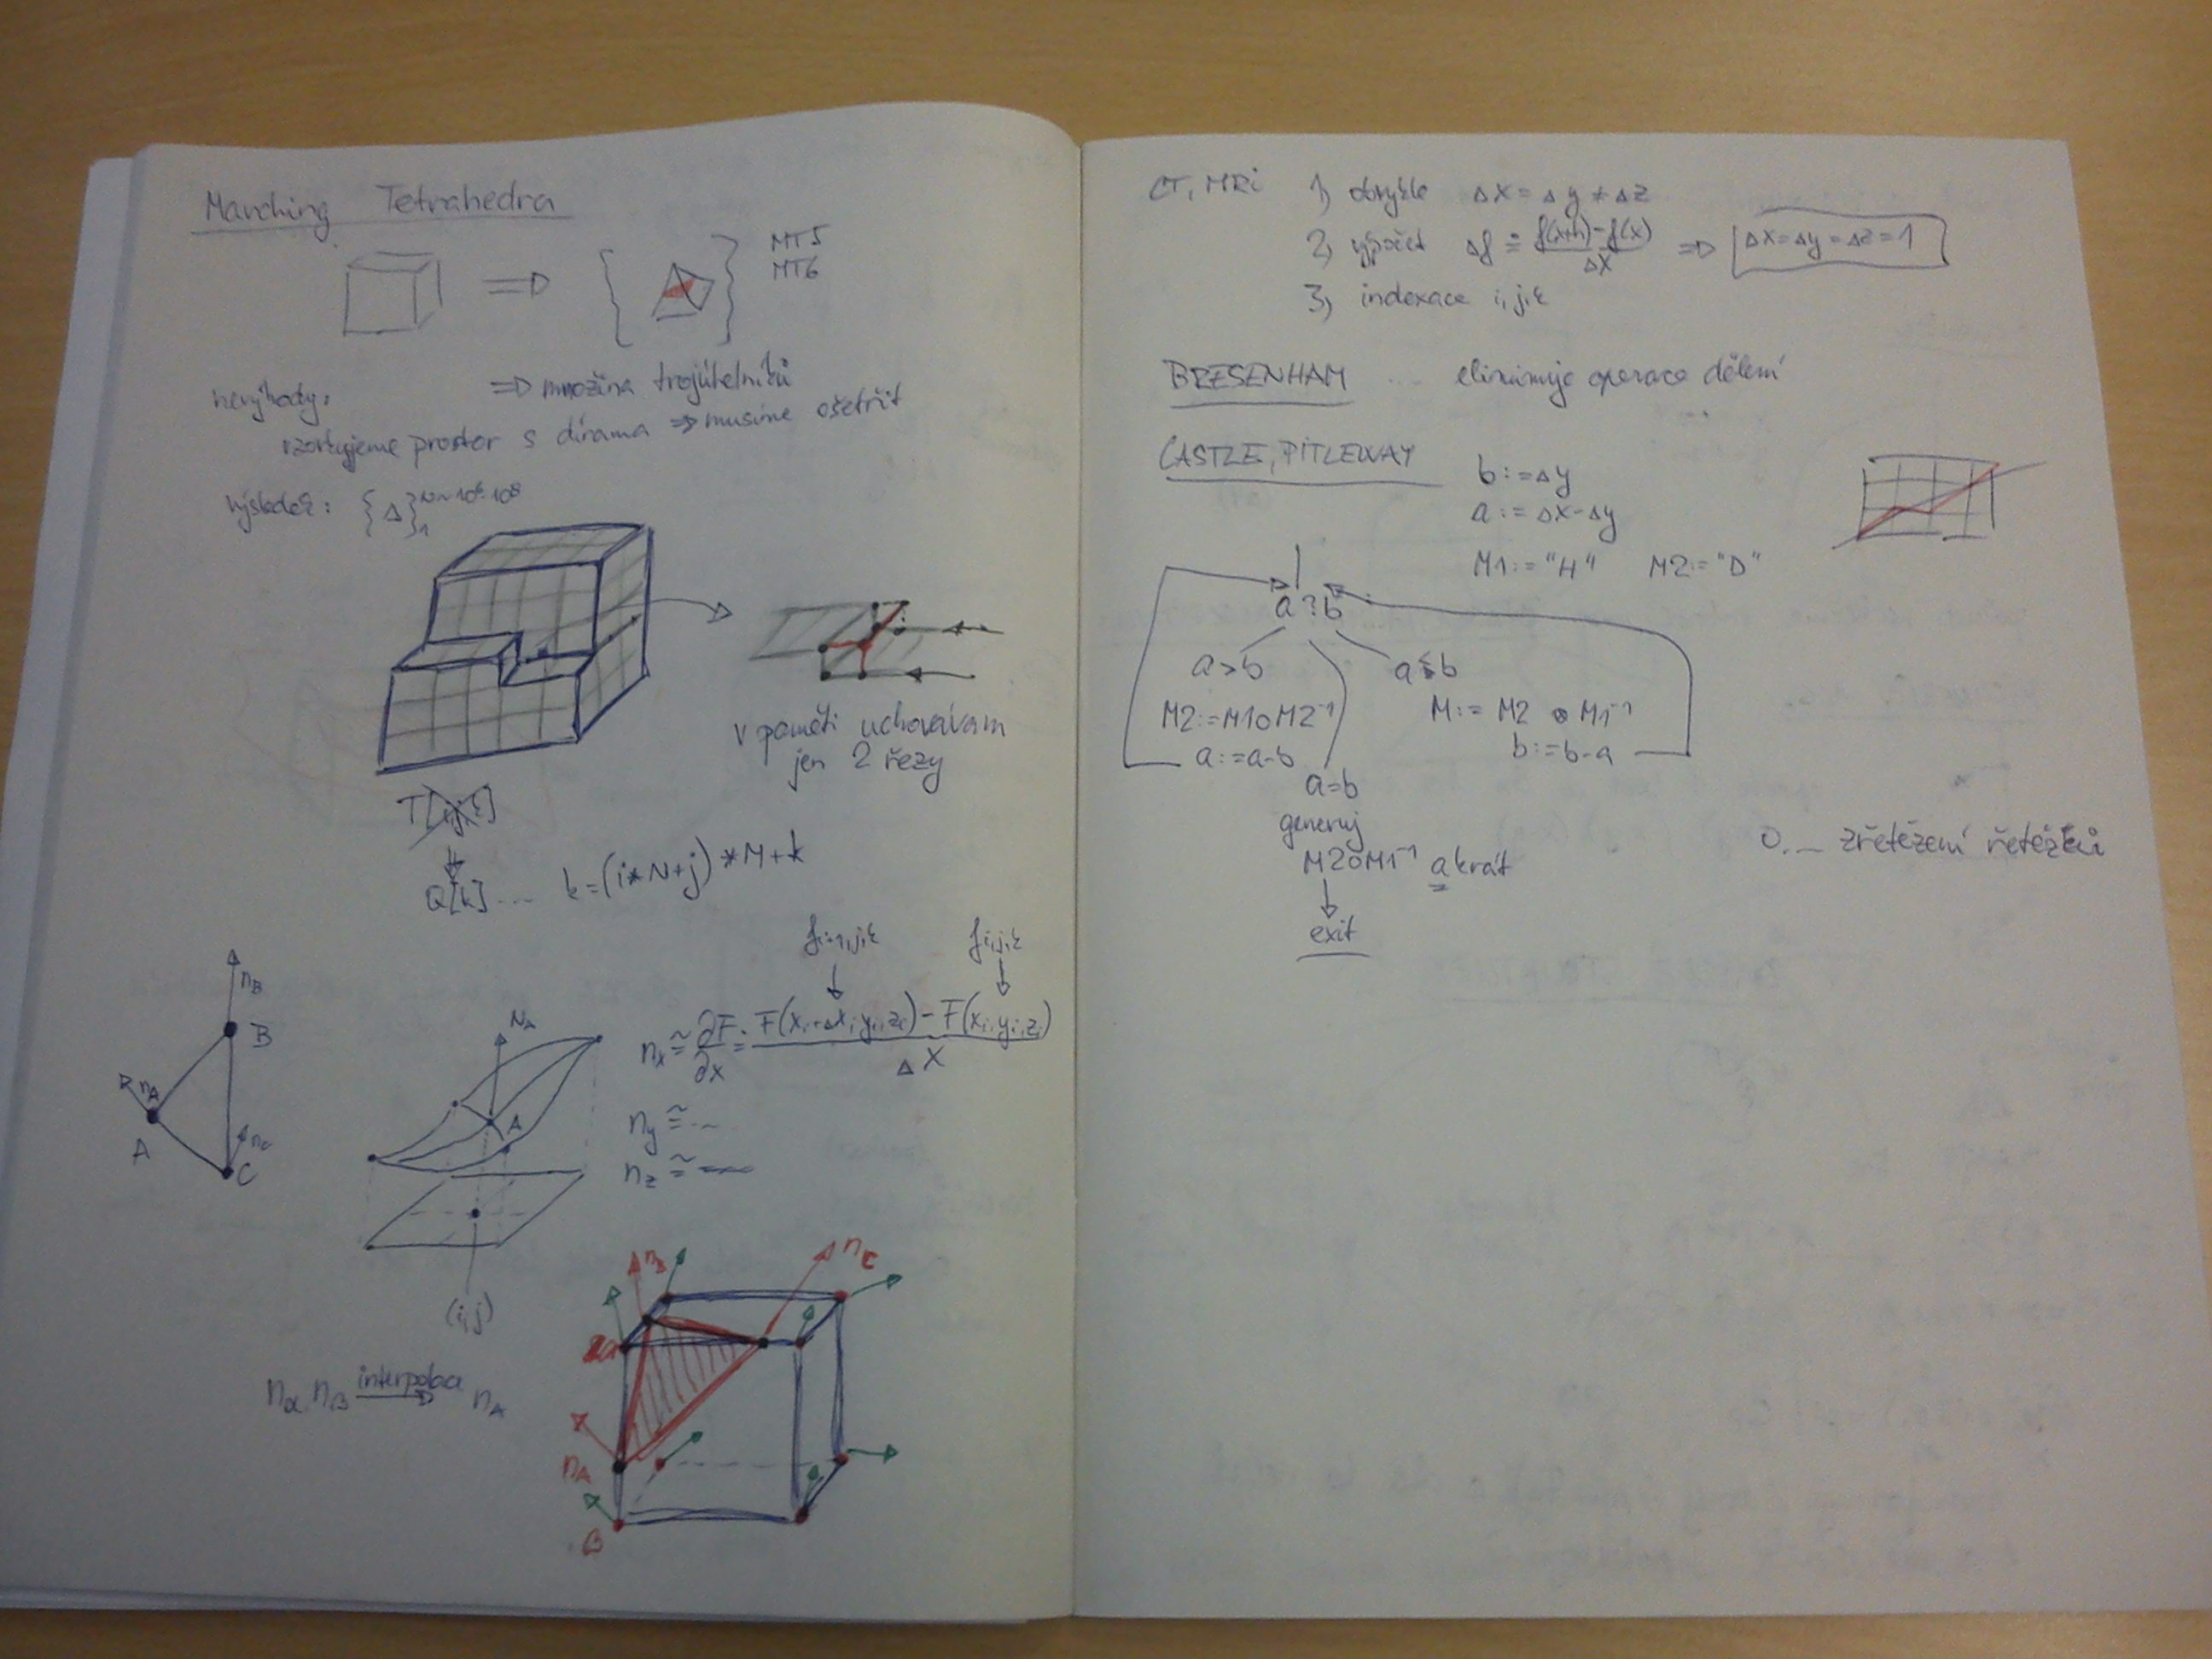 Marching Tetrahedra
MT5
MT6
nevýhody:
⇒ množina trojúhelníků
prostor s dírama ⇒ musíme ošetřit
výsledek: {Δ}
v paměti uchovávam
jen 2 řezy
T[i,j,k]
Q[k] ... k=(i*N+j)*M+k
f i+1,j,k
f i,j,k
n_B
B
n_A
A
n_C
C
N_A
A
n_x ≅ ∂F/∂x ≐ (F(x_i+Δx, y_i, z_i) - F(x_i, y_i, z_i)) / Δx
n_y ≅ ...
n_z ≅
(i,j)
n_B
n_C
n_A
β
n_α n_β interpolace n_A
CT, MRi
1) obvykle Δx = Δy ≠ Δz
2) výpočet Δf ≐ (f(x+h) - f(x)) / Δx ⇒ Δx=Δy=Δz=1
3) indexace i,j,k
BRESENHAM ... eliminuje operace dělení
CASTLE, PITLEWAY
b:=Δy
a:=Δx-Δy
M1:="H" M2:="D"
a ? b
a>b
a≤b
M2:=M1∘M2⁻¹
M:= M2 ∘ M1⁻¹
a:=a-b
b:=b-a
a=b
generuj
M2∘M1⁻¹ a krát
exit
∘... zřetězení řetězců